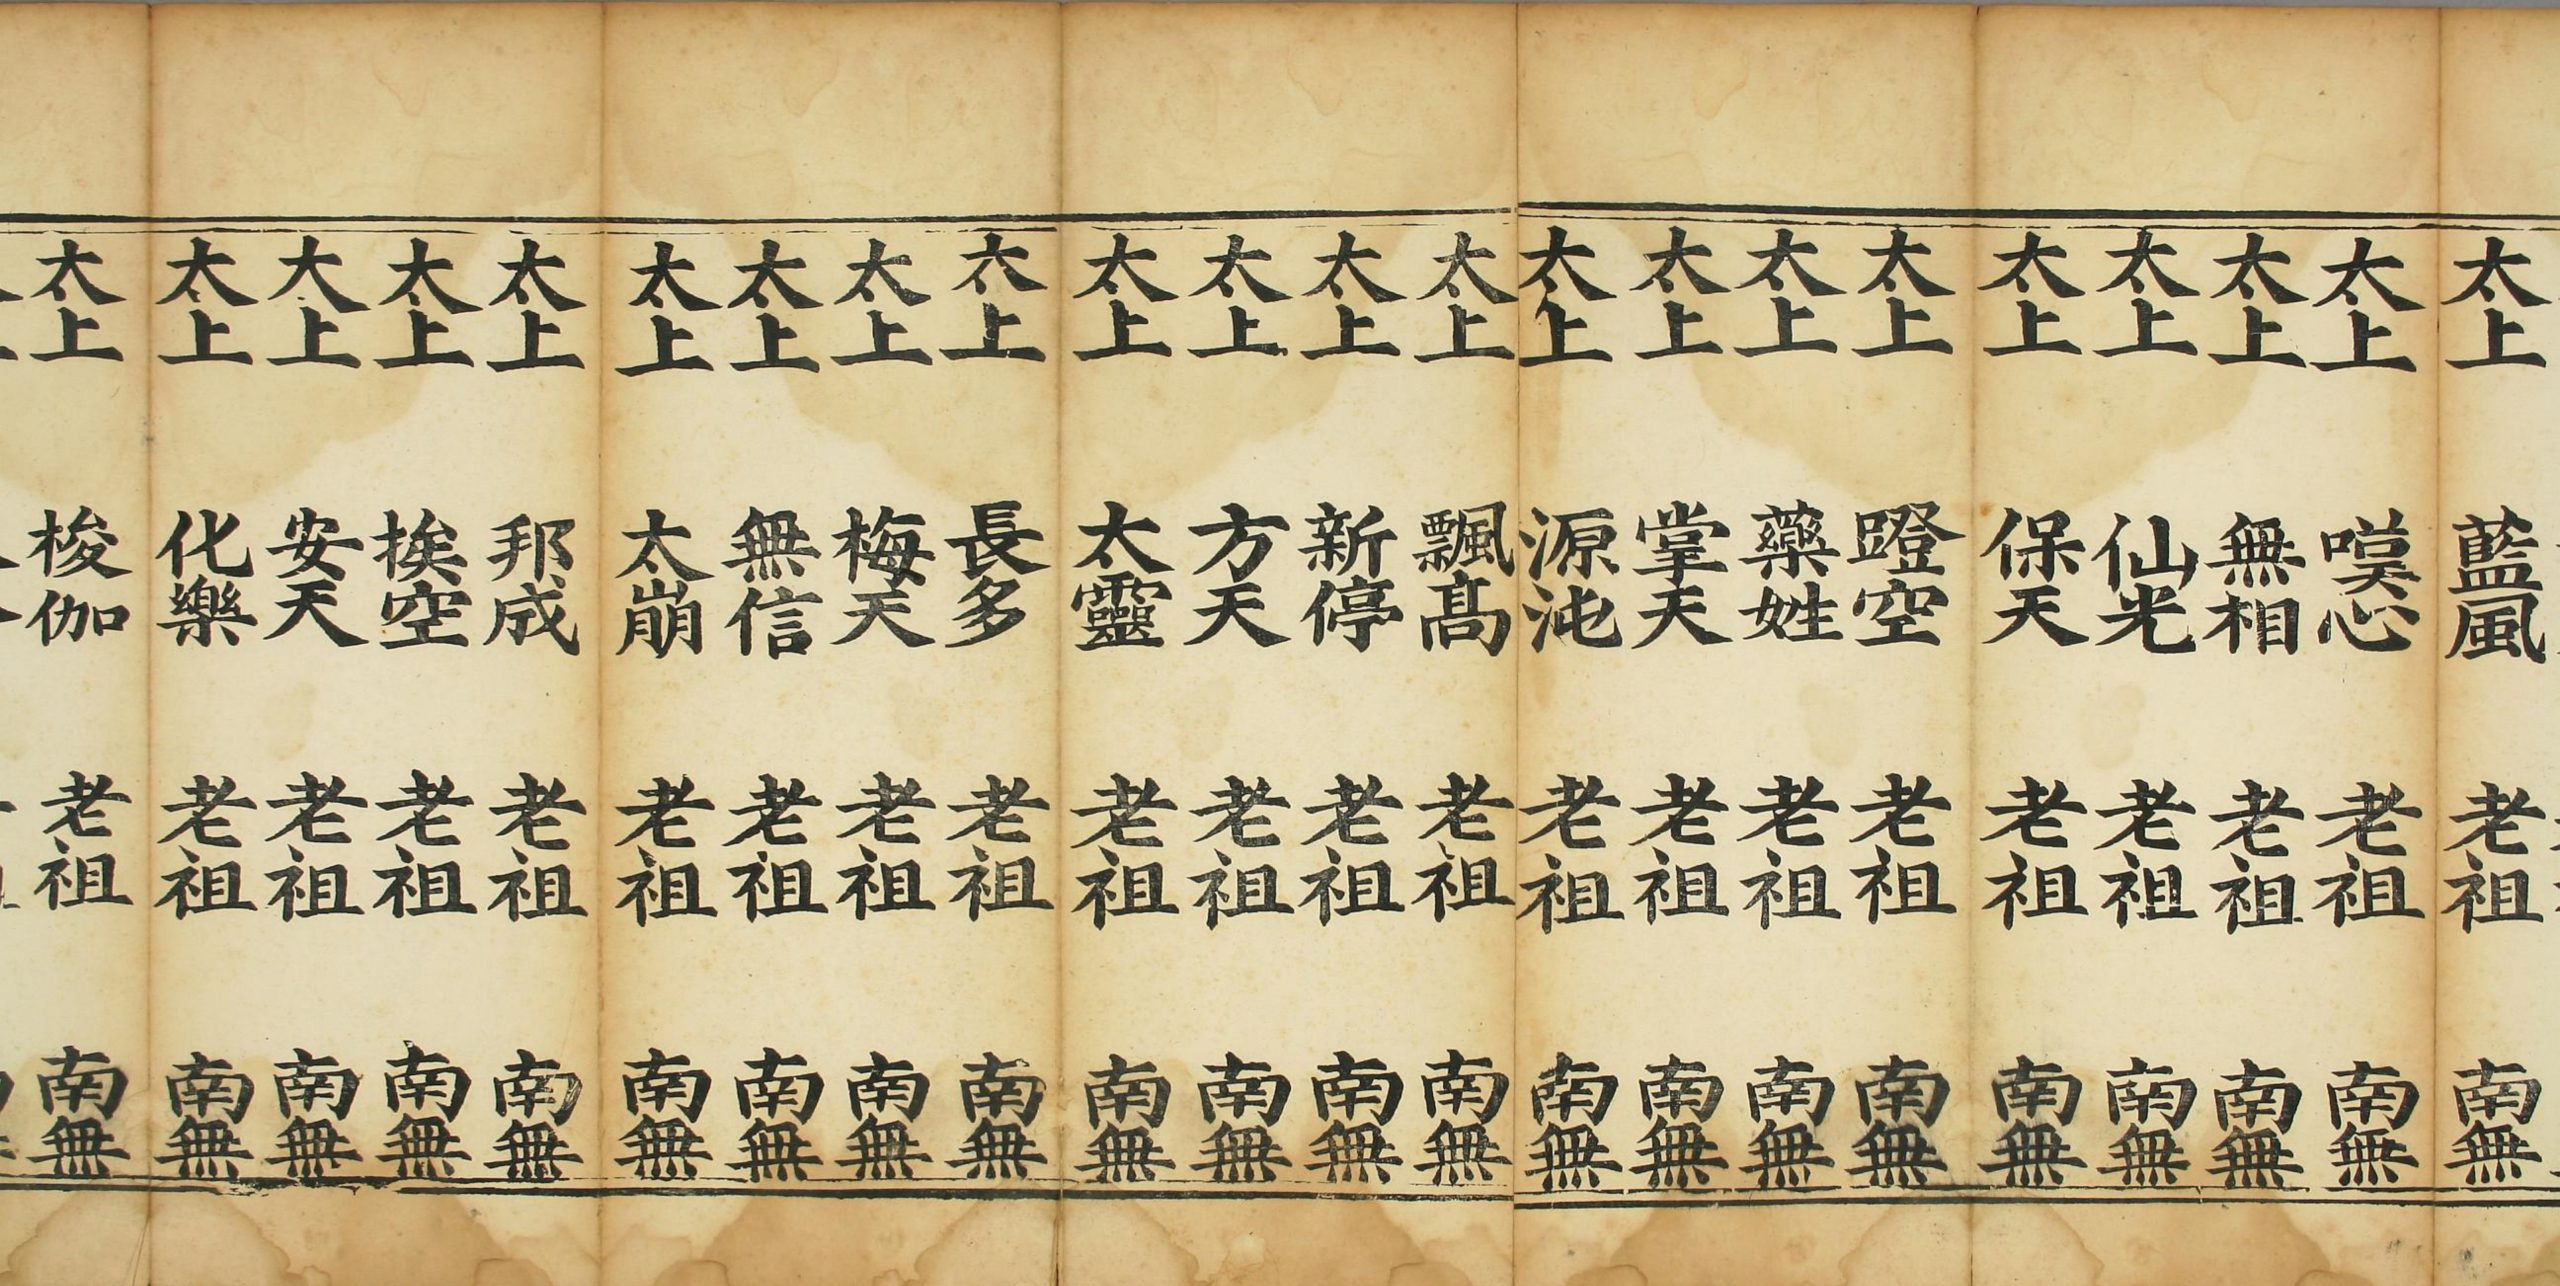 太上藍風老祖南無
太上嘆心老祖南無
太上無相老祖南無
太上仙光老祖南無
太上保天老祖南無
太上蹬空老祖南無
太上藥姓老祖南無
太上掌天老祖南無
太上源沌老祖南無
太上飄髙老祖南無
太上新停老祖南無
太上方天老祖南無
太上太靈老祖南無
太上長多老祖南無
太上梅天老祖南無
太上無信老祖南無
太上太崩老祖南無
太上邦成老祖南無
太上挨空老祖南無
太上安天老祖南無
太上化樂老祖南無
太上梭伽老祖南無